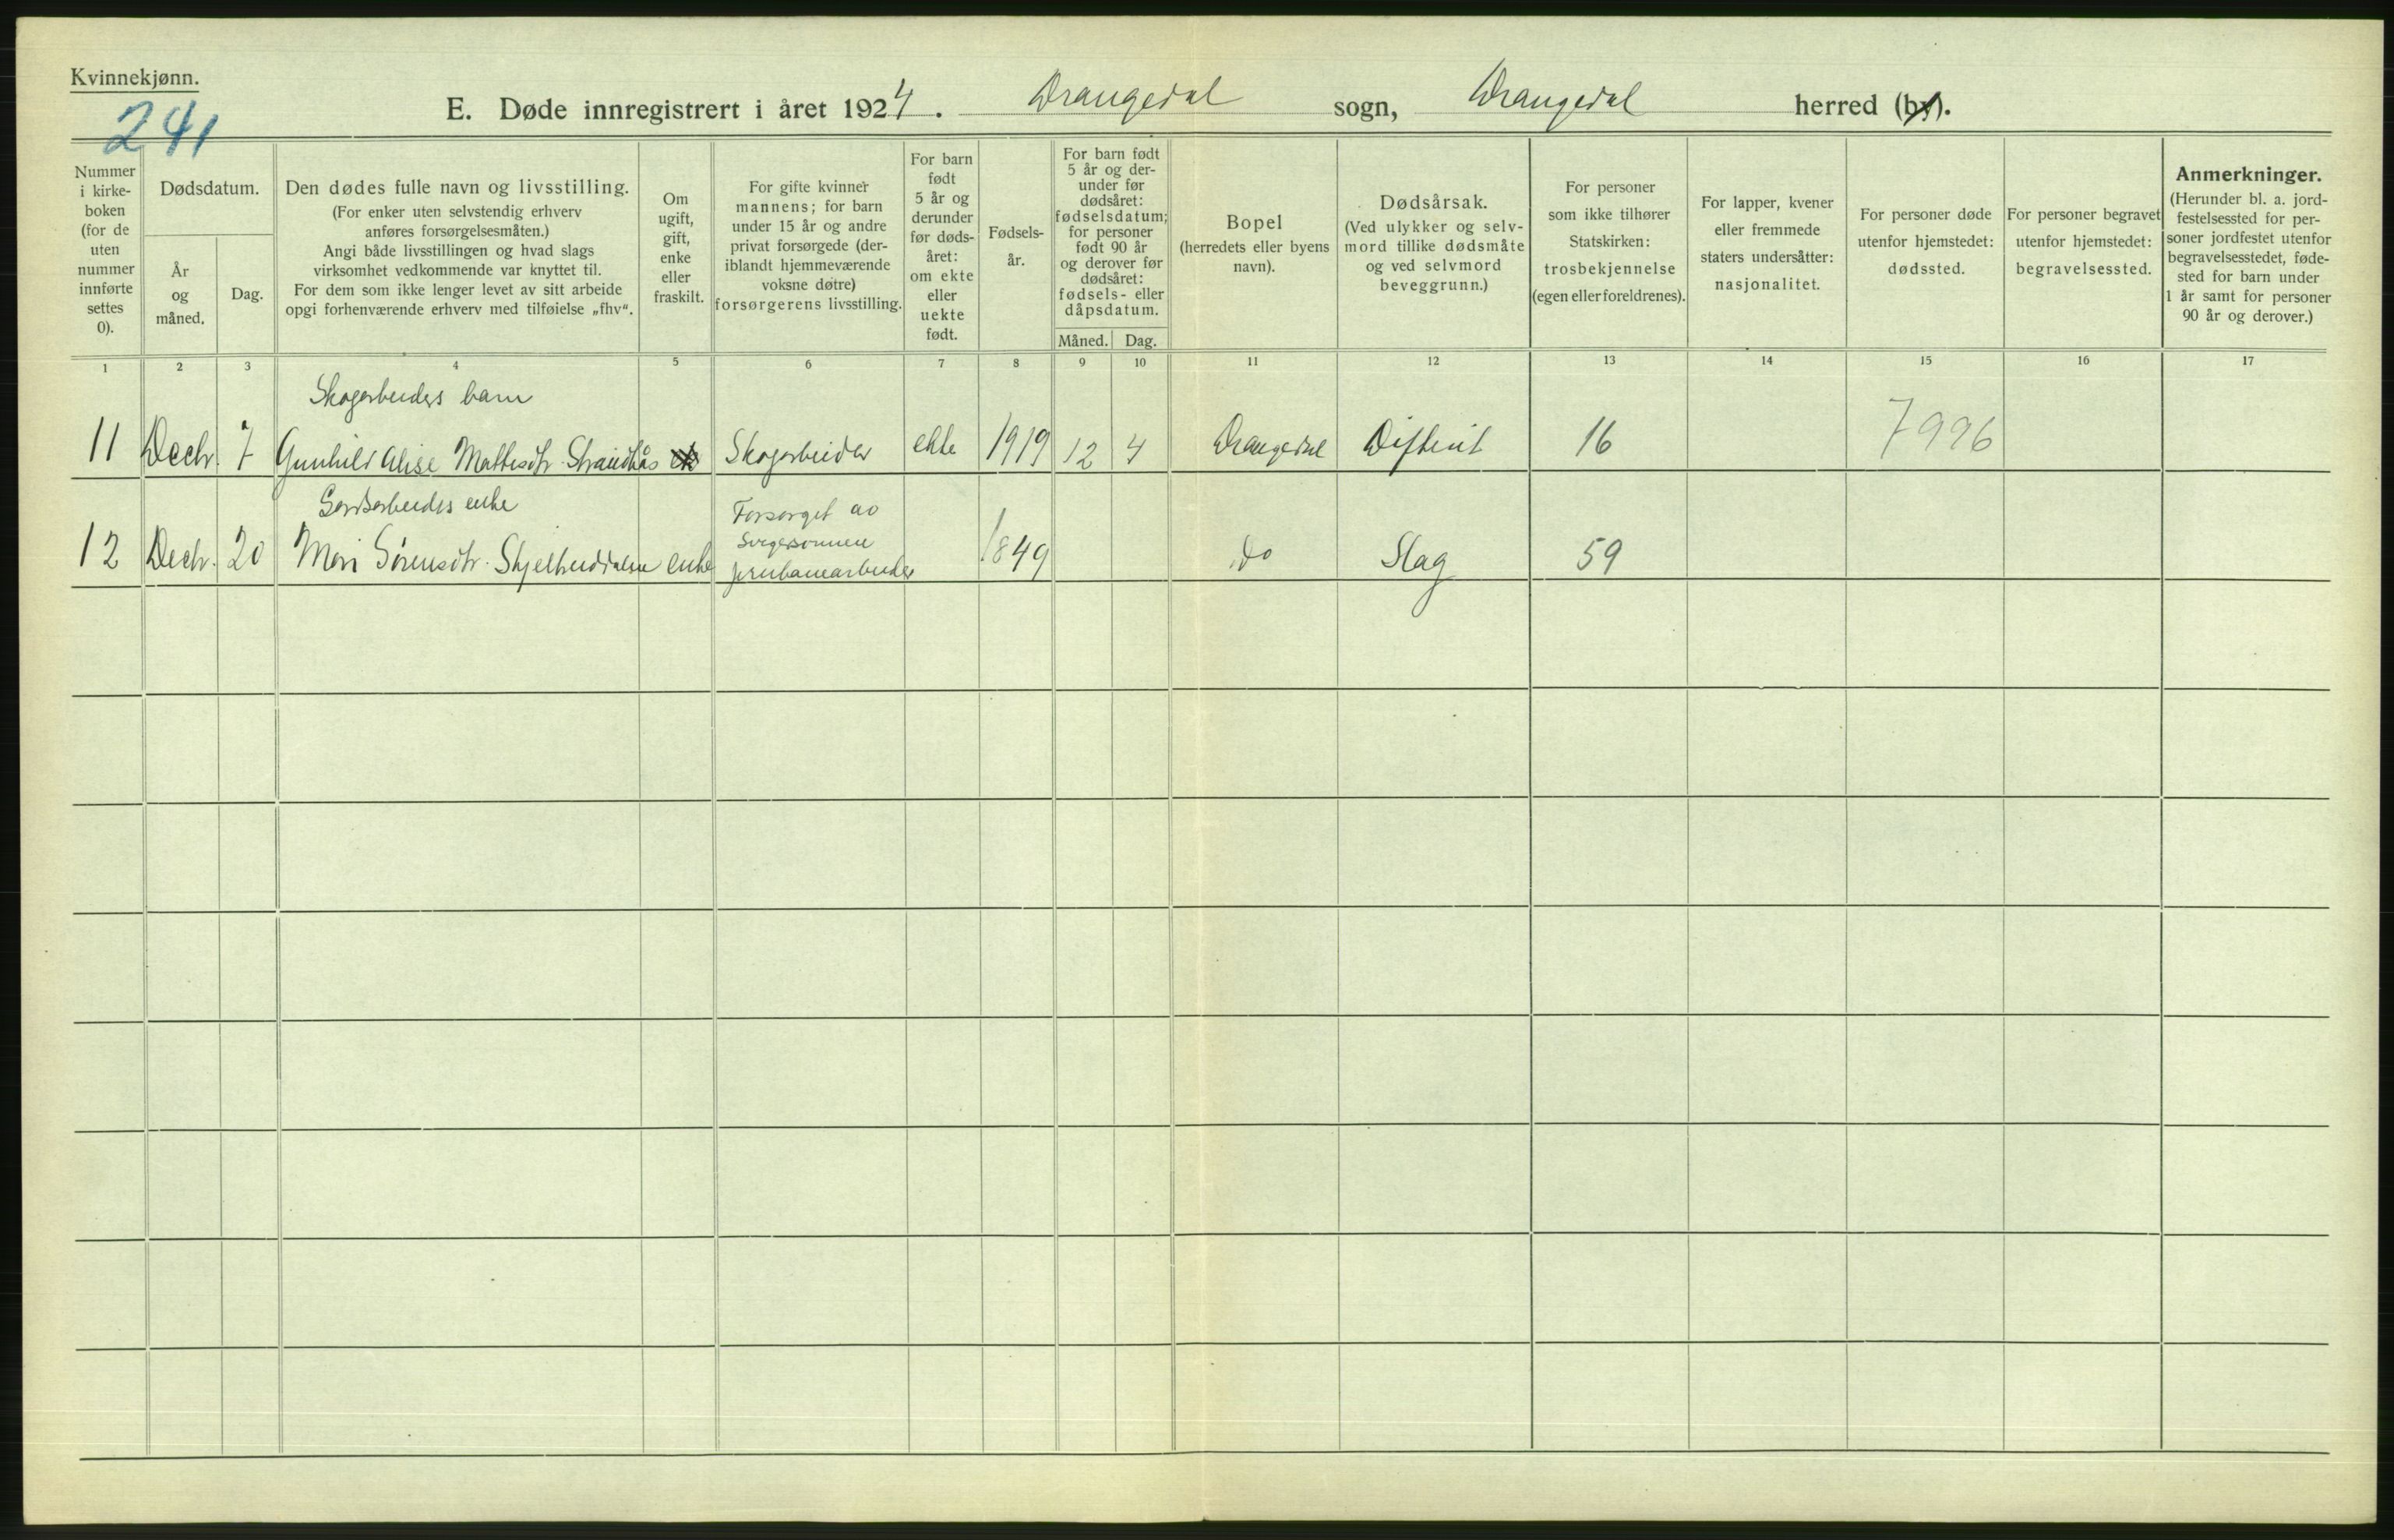 Kvinnekjønn.
241
E. Døde innregistrert i året 1924. Drangedal sogn, Drangedal herred (by).
Nummer i kirke-boken (for de uten nummer innførte settes 0).
Dødsdatum.
År og måned.
Dag.
Den dødes fulle navn og livsstilling.
(For enker uten selvstendig erhverv
anføres forsørgelsesmåten.)
Angi både livsstillingen og hvad slags
virksomhet vedkommende var knyttet til.
For dem som ikke lenger levet av sitt arbeide
opgi forhenværende erhverv med tilføielse „fhv“.
Om
ugift,
gift,
enke
eller
fraskilt.
For gifte kvinner
mannens; for barn
under 15 år og andre
privat forsørgede (der-
iblandt hjemmeværende
voksne døtre)
forsørgerens livsstilling.
For barn
født
5 år og
derunder
før døds-
året:
om ekte
eller
uekte
født.
Fødsels-
år.
For barn født
5 år og der-
under før
dødsåret:
fødselsdatum;
for personer
født 90 år
og derover før
dødsåret:
fødsels- eller
dåpsdatum.
Måned. Dag.
Bopel
(herredets eller byens
navn).
Dødsårsak.
(Ved ulykker og selv-
mord tillike dødsmåte
og ved selvmord
beveggrunn.)
For personer
som ikke tilhører
Statskirken:
trosbekjennelse
(egen eller foreldrenes).
For lapper, kvener
eller fremmede
staters undersåtter:
nasjonalitet.
For personer døde
utenfor hjemstedet:
dødssted.
For personer begravet
utenfor hjemstedet:
begravelsessted.
Anmerkninger.
(Herunder bl. a. jord-
festelsessted for per-
soner jordfestet utenfor
begravelsesstedet, føde-
sted for barn under
1 år samt for personer
90 år og derover.)
1 2 3 4 5 6 7 8 9 10 11 12 13 14 15 16 17
Skogarbeiders barn
11 Decbr. 7 Gunhild Alise Mattisdtr. Strandhås Skogarbeider ekte 1919 12 4 Drangedal Difterit 16 7996
Gårdsarbeiders enke
12 Decbr. 20 Mari Sørensdtr. enke Forsørget av
Svigersønnen
jernbanearbeider 1849 do Slag 59